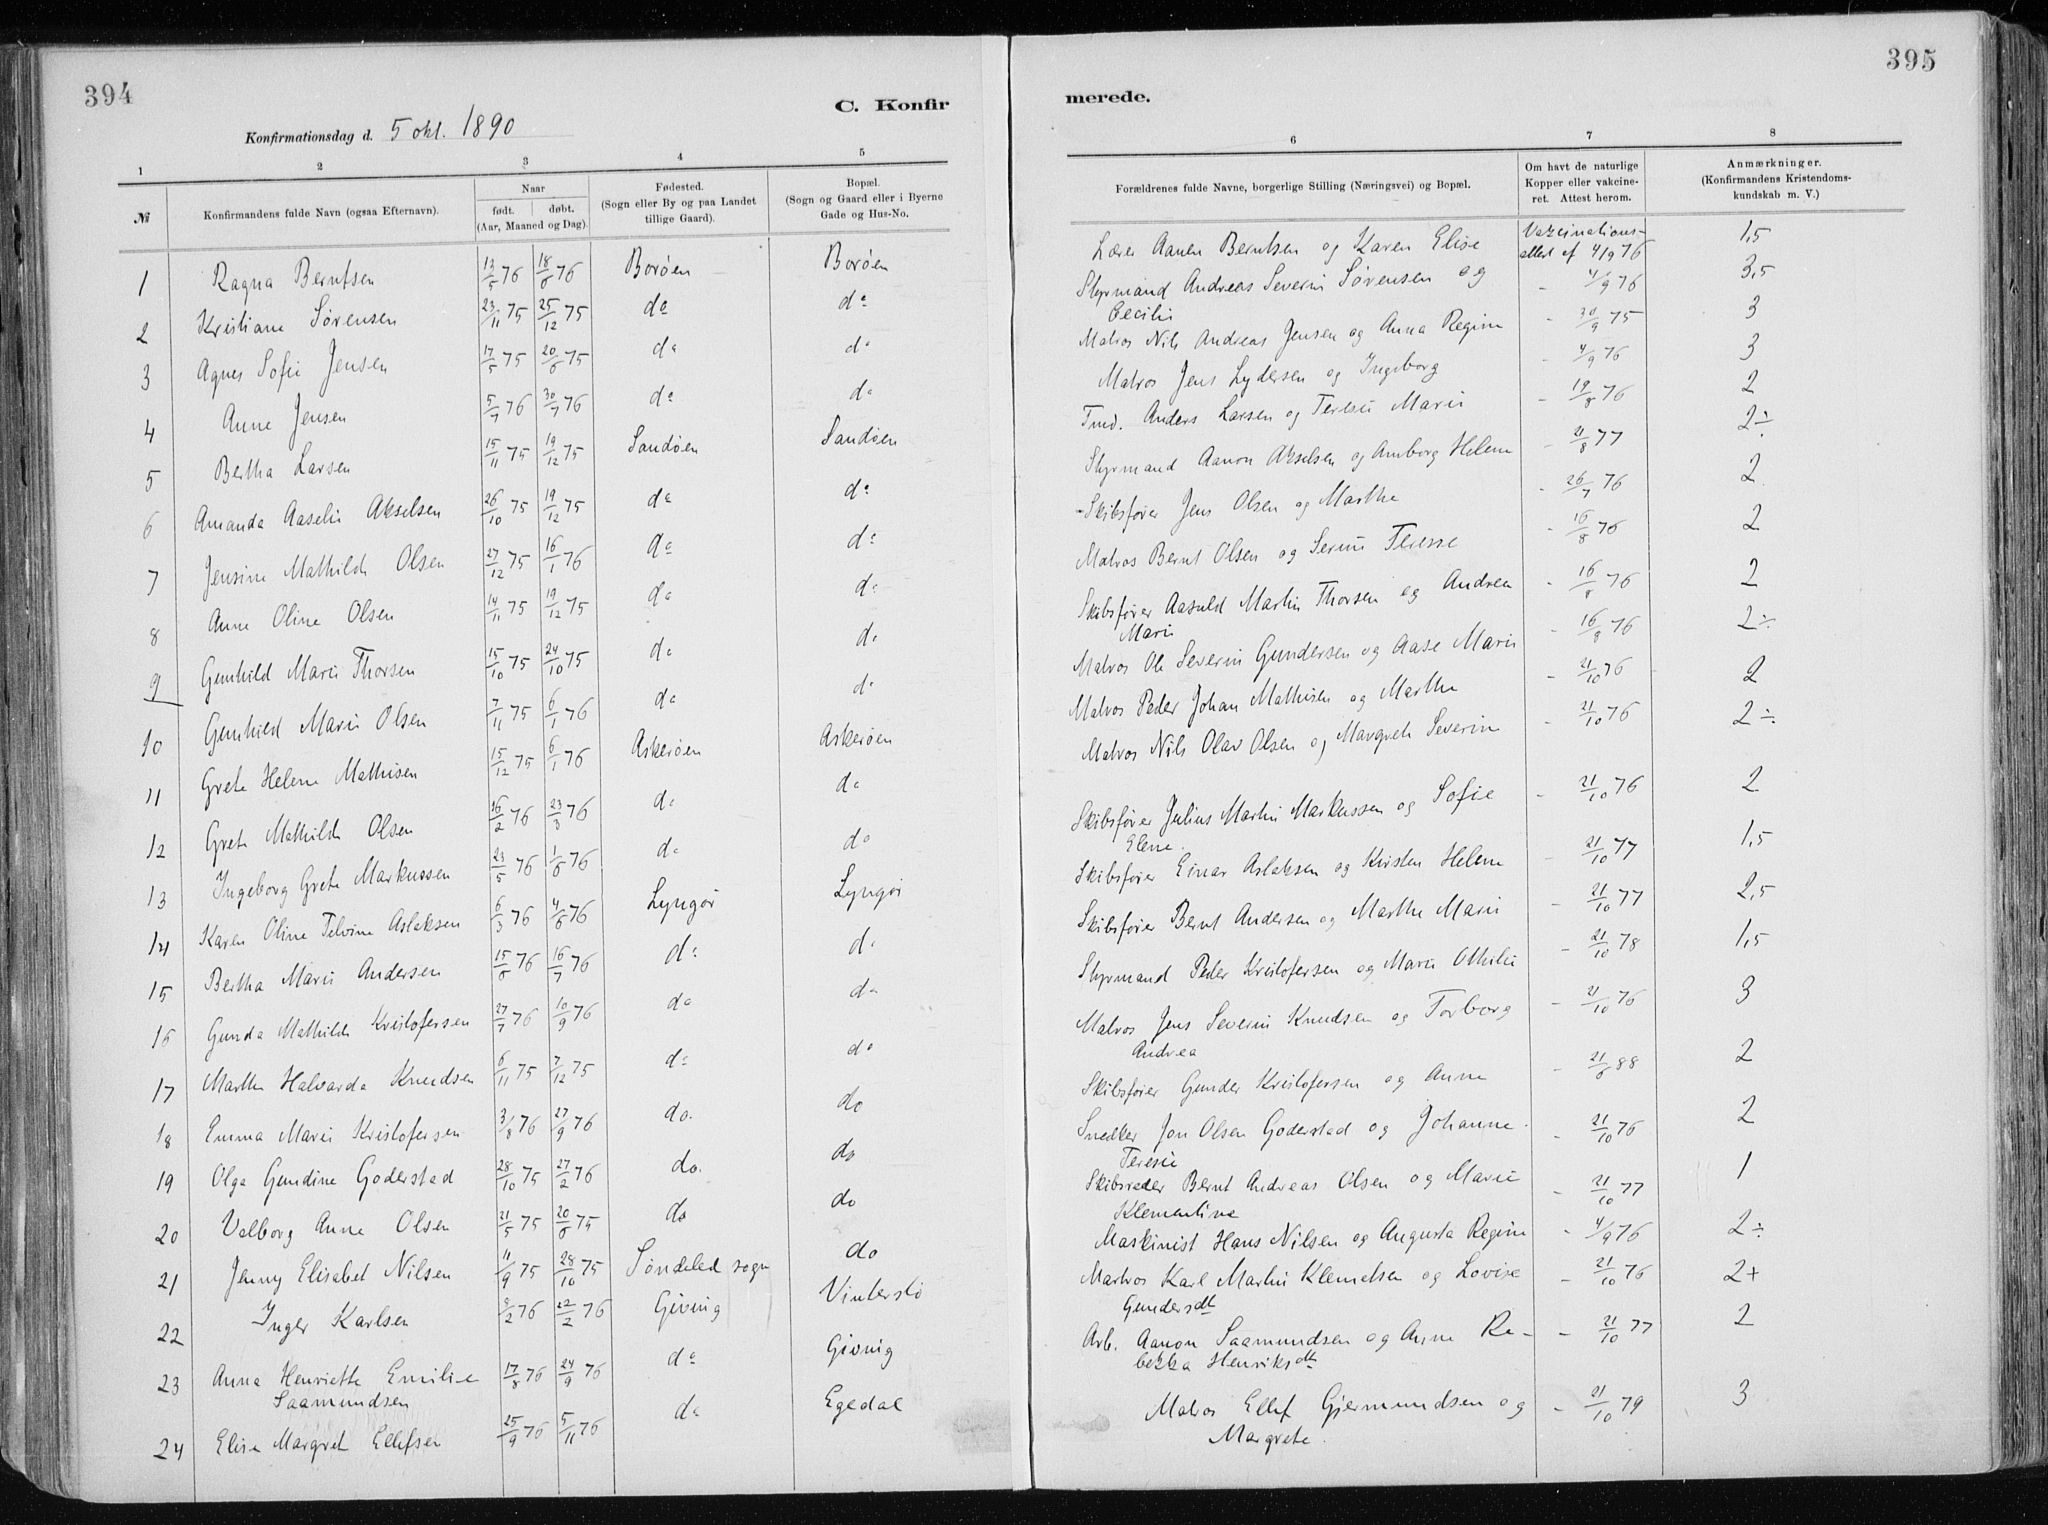 394
C. Konfir
Konfirmationsdag d. 5 okt. 1890
1 2 3 4 5
№ Konfirmandens fulde Navn (ogsaa Efternavn). Naar født. døbt. (Aar, Maaned og Dag). Fødested. (Sogn eller By og paa Landet tillige Gaard). Bopæl. (Sogn og Gaard eller i Byerne Gade og Hus-No.
1 Ragna Berntsen 13/5 76 18/6 76 Borøen Borøen
2 Kristiane Sørensen 23/11 75 25/12 75 do do
3 Agnes Sofie Jensen 17/5 75 20/6 75 do do
4 Anne Jensen 5/7 76 30/7 76 do do
5 Bertha Larsen 15/11 75 19/12 75 Sandøen Sandøen
6 Amanda Aaselie Akselsen 26/10 75 19/12 75 do do
7 Jensine Mathilde Olsen 27/12 75 16/1 76 do do
8 Anne Oline Olsen 14/11 75 19/12 75 do do
9 Gunhild Marie Thorsen 15/10 75 24/10 75 do do
10 Gunhild Marie Olsen 7/11 75 6/1 76 do do
11 Grete Helene Mathisen 15/12 75 6/1 76 Askerøen Askerøen
12 Grete Mathilde Olsen 26/2 76 23/3 76 do do
13 Ingeborg Grete Markussen 23/5 76 1/6 76 do do
14 Karen Oline Telvine Aslaksen 6/3 76 4/6 76 Lyngør Lyngør
15 Bertha Marie Andersen 15/6 76 16/7 76 do do
16 Gunda Mathilde Kristofersen 27/7 76 10/9 76 do do
17 Marthe Halvarda Knudsen 6/11 75 7/12 75 do do
18 Emma Marie Kristofersen 3/8 76 27/9 76 do. do
19 Olga Gundine Goderstad 28/10 75 27/2 76 do. do
20 Valborg Anne Olsen 21/5 75 20/6 75 do do
21 Jenny Elisabet Nilsen 11/9 75 28/10 75 Søndeled sogn do
22 Inger Karlsen 9/2 76 22/2 76 Giving Vinterstø
23 Anna Henriette Emilie 17/8 76 24/9 76 do Giving
Saamundsen
24 Elise Margret Ellefsen 25/9 76 5/11 76 do Egedal
395
merede.
6 7 8
Forældrenes fulde Navne, borgerlige Stilling (Næringsvei) og Bopæl. Om havt de naturlige Kopper eller vakcineret. Attest herom. Anmærkninger. (Konfirmandens Kristendomskundskab m. V.)
Lærer Aanen Berntsen og Karen Elise Vaccinationsattest af 4/9 76 1,5
Styrmand Andreas Severin Sørensen og - 4/9 76 3,5
Cecilie
Matros Nils Andreas Jensen og Anna Regine - 30/9 75 3
Matros Jens Lydersen og Ingeborg - 4/9 76 3
Tmd. Anders Larsen og Terese Marie - 19/8 76 2
Styrmand Aanon Akselsen og Amborg Helene - 21/8 77 2÷
Skibsfører Jens Olsen og Marthe - 26/7 76 2
Matros Bernt Olsen og Serine Terese - 16/8 76 2
Skibsfører Aasuld Martin Thorsen og Andrea - 16/8 76 2
Marie
Matros Ole Severin Gundersen og Aase Marie - 16/8 76 2÷
Matros Peder Johan Mathisen og Marthe - 21/10 76 2
Matros Nils Olav Olsen og Margrete Severine - 21/10 76 2÷
Skibsfører Julius Martin Markussen og Sofie - 21/10 76 2
Elene.
Skibsfører Einar Aslaksen og Kirsten Helene - 21/10 77 1,5
Skibsfører Bernt Andersen og Marthe Marie - 21/10 77 2,5
Styrmand Peder Kristofersen og Marie Othilie - 21/10 78 1,5
Matros Jens Severin Knudsen og Torborg - 21/10 76 3
Andrea
Skibsfører Gunder Kristofersen og Anne - 21/6 88 2
Snedker Jon Olsen Goderstad og Johanne - 21/10 76 2
Teresie
Skibsreder Bernt Andreas Olsen og Marie - 21/10 77 1
Klementine
Maskinist Hans Nilsen og Augusta Regine - 4/9 76 2÷
Martros Karl Martin Klemetsen og Lovise - 21/10 76 2+
Gundersdt
Arb. Aanon Saamundsen og Anne Re- - 21/10 77 2
bekka Henriksdt
Matros Ellef Gjermundsen og - 21/10 79 3
Margrete.